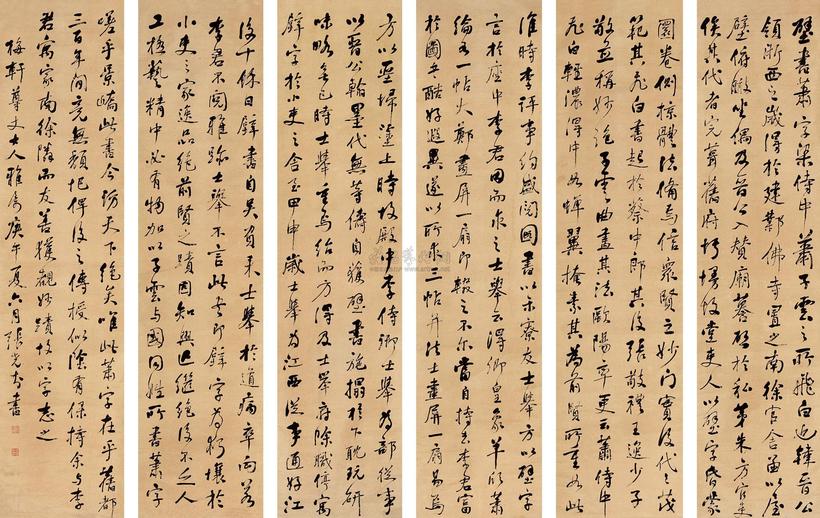 壁書蕭字梁侍中蕭子雲之所飛白也韓晉公
領浙西之歲得於建鄴佛寺置之南徐官舍函以屋
壁俯徹坐偶及晉公入贊廟謩啓於私第朱方官吏
俟其代者完葺舊府圬墁故堂吏人以壁字昏蒙
圜卷側掠體法備焉信眾賢之妙門實後代之茂
範其飛白書起於蔡中郎其後張敬禮王逸少子
敬並稱妙絕子雲曲盡其法歐陽率更云蕭侍中
飛白輕濃得中如蟬翼掩素其為前賢所重如此
淮時李評事約盛閱圖書以示寮友士舉方以壁字
言於座中李君因而求之士舉云得卿皇象羊欣蕭
綸各一帖大鄭畫屏一扇即輟之不尔當自持去李君富
於圖書酷好趣異遂以所求三帖并法士畫屏一扇易焉
方以堊埽塗上時故殿中李侍御士舉為部從事
以晉公翰墨代無等儔自獲壁書施搨於下耽玩研
味略無已時士舉重焉紿而方得及士舉府除職停寓
壁字於小吏之舍至甲申歲士舉為江西從事適好江
後十餘日壁書自吳負來士舉於道病卒向若
李君不閱雅跡士舉不言此書即壁字為朽壤於
小吏之家逸品絕前賢之蹟因知興亡繼絕後不乏人
工極藝精中必有物加以子雲與國同姓所書蕭字
嗟乎集嶠此書今訪天下絕矣唯此蕭字在乎舊都
三百年間竟無頹圯俾後之傳授似陰有保持余與李
君寓家南徐隣而友善獲觀妙蹟故以字志之
梅軒尊丈大人雅屬庚午夏六月張 書